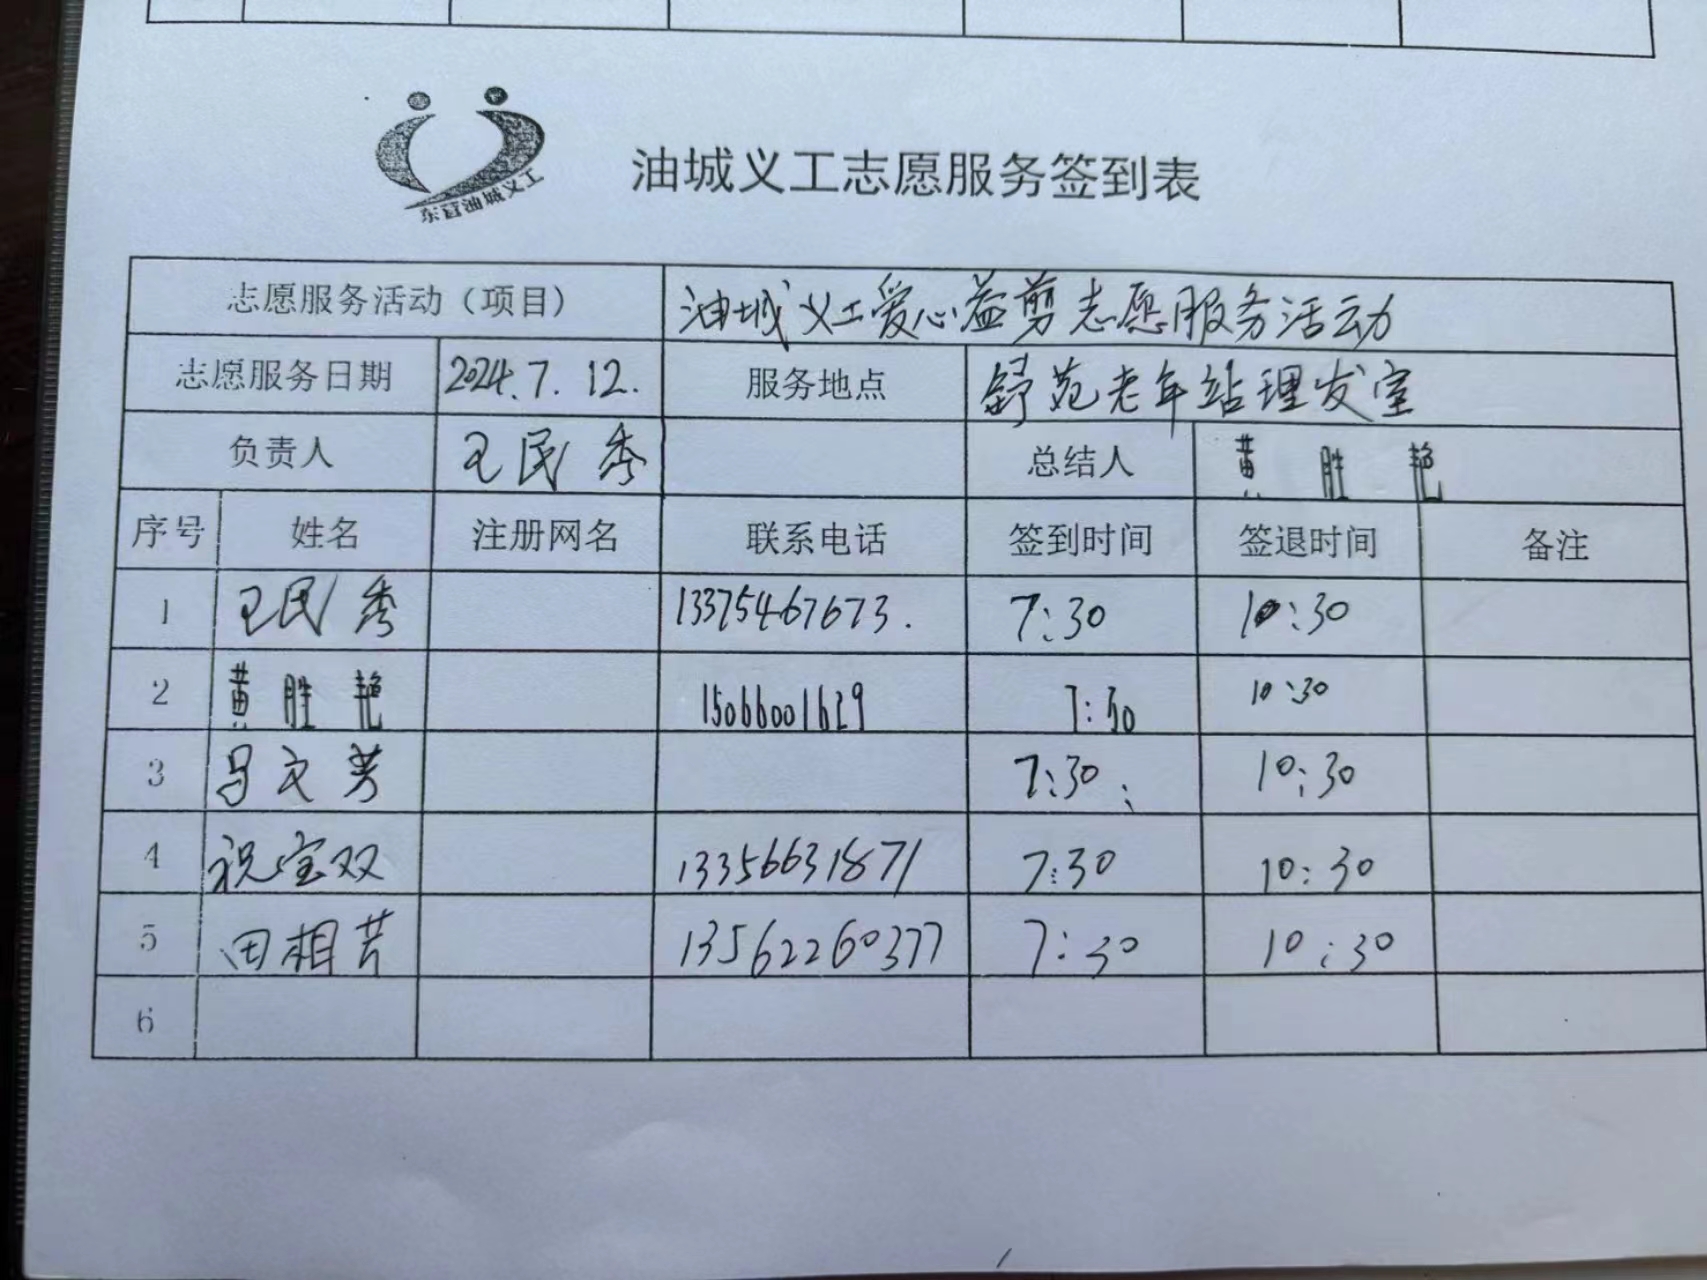 东营油城义工
油城义工志愿服务签到表
志愿服务活动（项目） 油城义工爱心益剪志愿服务活动
志愿服务日期 2024.7.12. 服务地点 舒苑老年站理发室
负责人 王民秀 总结人 黄胜艳
序号 姓名 注册网名 联系电话 签到时间 签退时间 备注
1 王民秀 13375467673. 7:30 10:30
2 黄胜艳 15066001629 7:30 10:30
3 文芳 7:30 10:30
4 祝宝双 13356631871 7:30 10:30
5 田相芳 13562260377 7:30 10:30
6